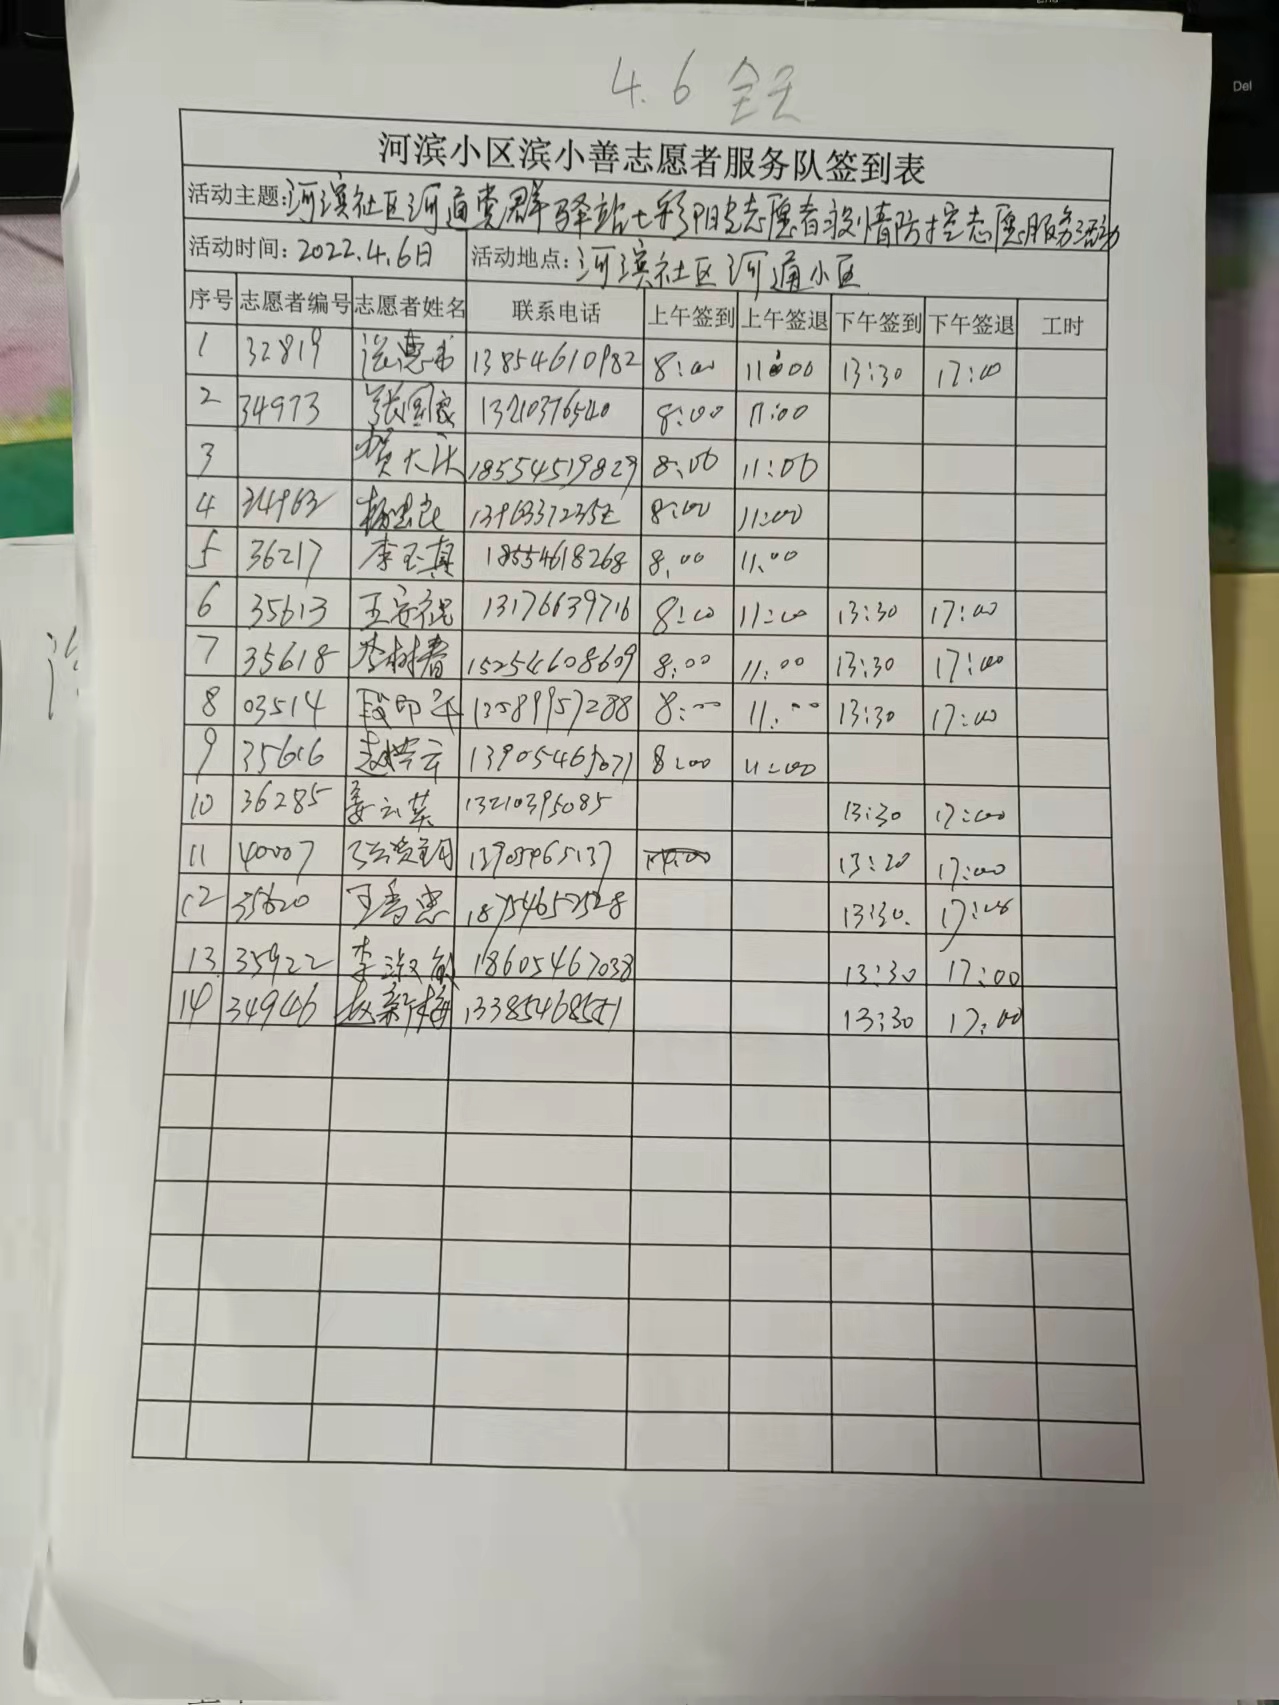 Del
4.6 全天
河滨小区滨小善志愿者服务队签到表
活动主题:河滨社区河通党群驿站七彩阳光志愿者疫情防控志愿服务活动
活动时间: 2022.4.6日 活动地点: 河滨社区河通小区
序号 志愿者编号 志愿者姓名 联系电话 上午签到 上午签退 下午签到 下午签退 工时
1 32819 13854610982 8:00 11:00 13:30 17:00
2 34973 张国良 13210376540 8:00 11:00
3 贺大庆 18554519829 8:00 11:00
4 34963 杨忠良 8:00 11:00
5 36217 李玉真 18554618268 8:00 11:00
6 35613 王安祝 13176639716 8:00 11:00 13:30 17:00
7 35618 李树春 15254608609 8:00 11:00 13:30 17:00
8 03514 段印军 13589957288 8:00 11:00 13:30 17:00
9 35616 13905465071 8:00 11:00
10 36285 姜云英 13210395085 13:30 17:00
11 40007 13905465137 13:20 17:00
12 35620 王秀忠 18754657528 13:30. 17:00
13. 35922 李淑敏 18605467038 13:30 17:00
14 34946 赵新梅 13385468551 13:30 17:00